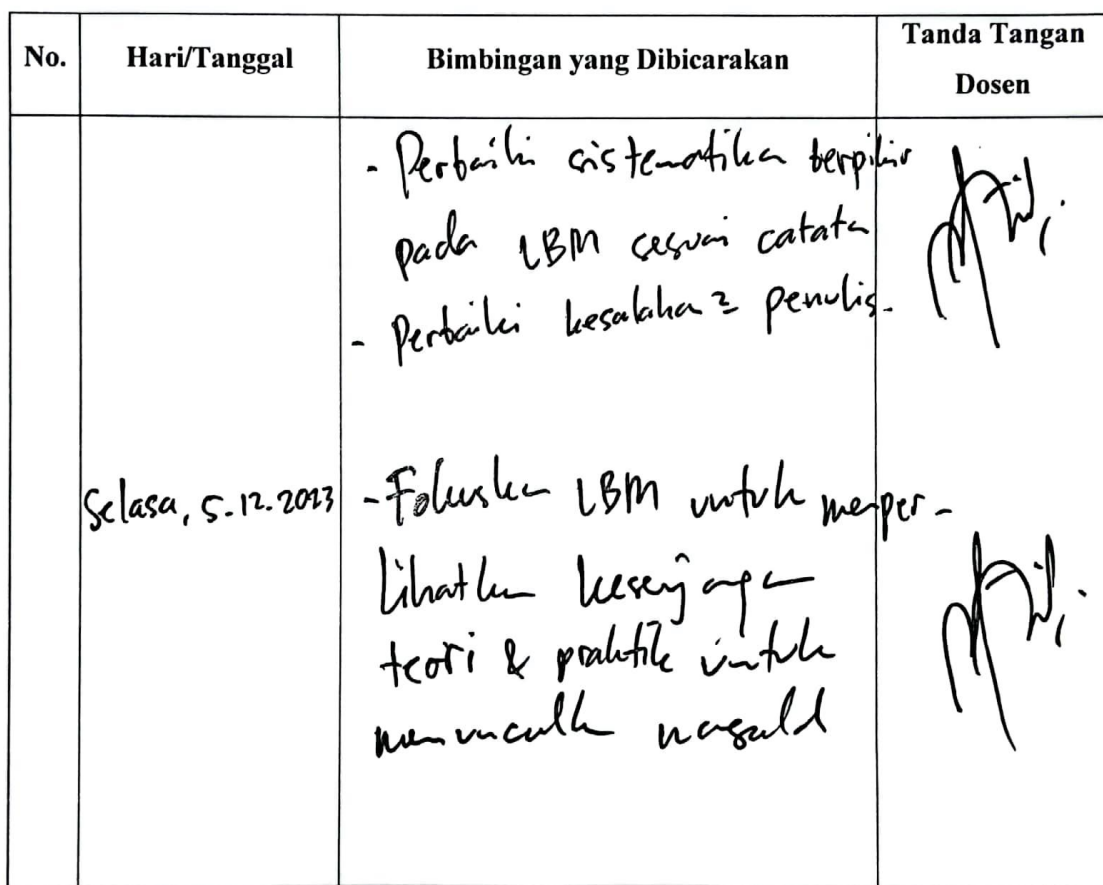 No. Hari/Tanggal Bimbingan yang Dibicarakan Tanda Tangan Dosen
- Perbaiki sistematika berpikir
pada LBM sesuai catata
- Perbaiki kesalaha2 penulis-
Selasa, 5.12.2023 - Fokuskan LBM untuk memper-
lihatkan kesenjangan
teori & praktik untuk
memunculk masalah